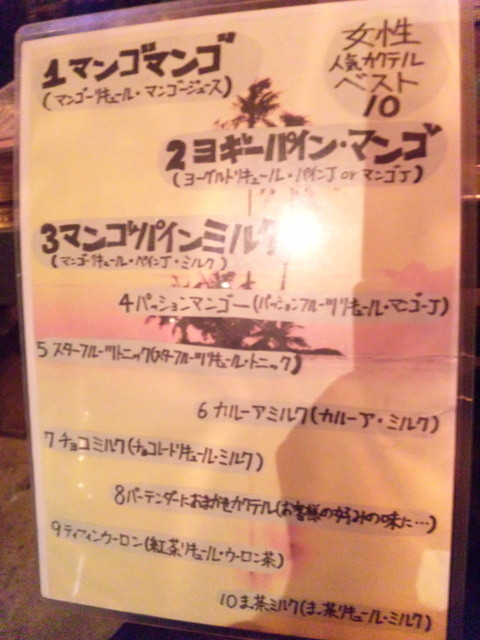 女性
人気カクテル
ベスト
10
1 マンゴマンゴ
(マンゴーリキュール・マンゴージュース)
2 ヨギーパイン・マンゴ
(ヨーグルトリキュール・パインJ or マンゴJ)
3 マンゴパインミルク
(マンゴーリキュール・パインJ・ミルク)
4 パッションマンゴー(パッションフルーツリキュール・マンゴーJ)
5 スターフルーツトニック(スターフルーツリキュール・トニック)
6 カルーアミルク(カルーア・ミルク)
7 チョコミルク(チョコレートリキュール・ミルク)
8 バーテンダーにおまかせカクテル(お客様の好みの味に…)
9 ティフィンウーロン(紅茶リキュール・ウーロン茶)
10 まっ茶ミルク(まっ茶リキュール・ミルク)